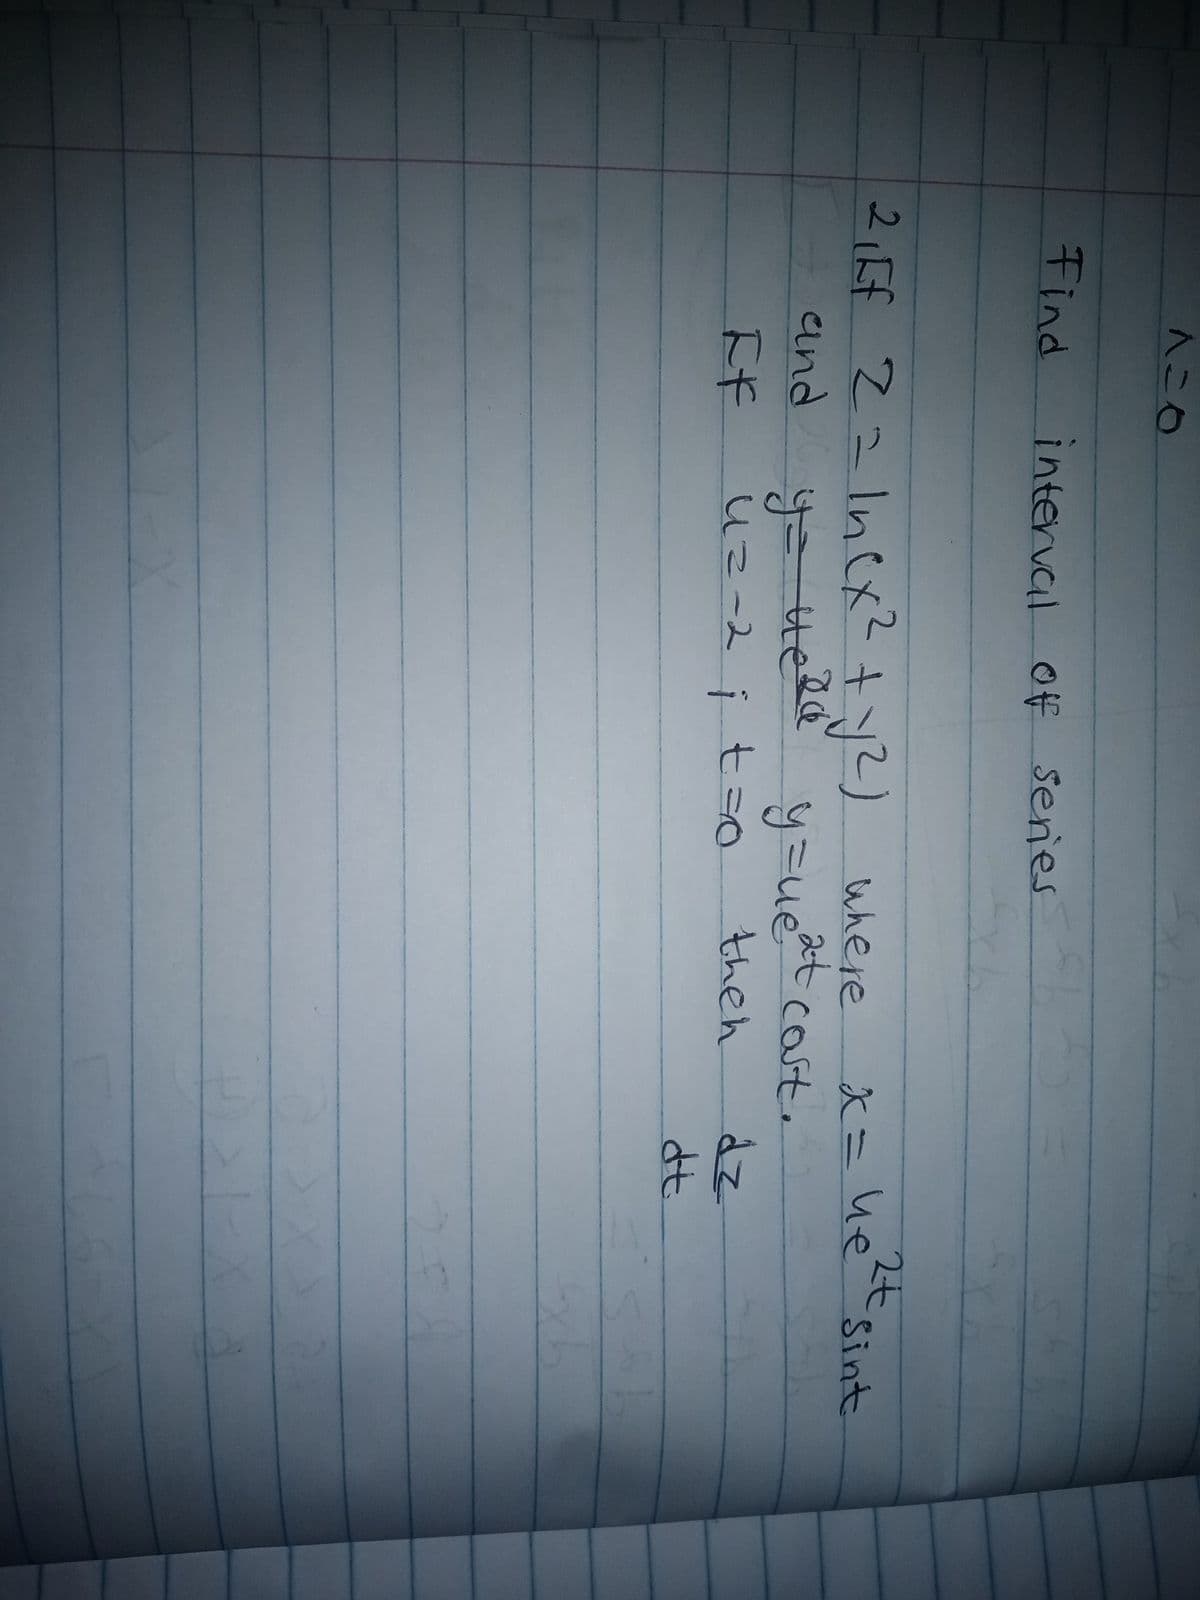 n=0
Find interval of series
2, If z = ln(x² + y²) where x = ue²ᵗ sint
and y = ue²ᵗ cost.
If u = -2 ; t = 0 then dz
dt